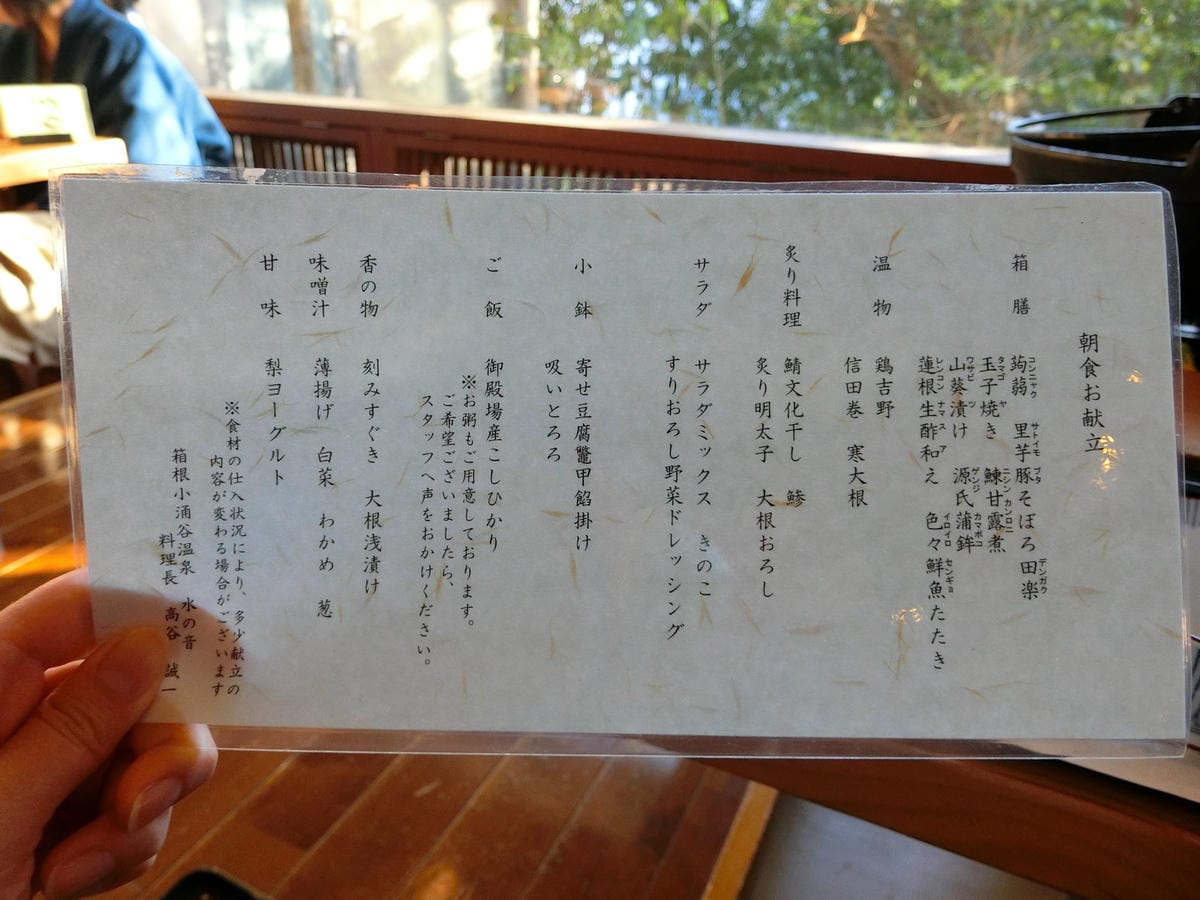 朝食お献立
箱膳 蒟蒻 里芋豚そぼろ田楽
コンニャク サトイモ ブタ デンガク
玉子焼き 鰊甘露煮
タマゴ ヤ ニシン カンロニ
山葵漬け 源氏蒲鉾
ワサビ ツ ゲンジ カマボコ
蓮根生酢和え 色々鮮魚たたき
レンコン ナマス ア イロイロ センギョ
温物 鶏吉野
信田巻 寒大根
炙り料理 鯖文化干し 鯵
炙り明太子 大根おろし
サラダ サラダミックス きのこ
すりおろし野菜ドレッシング
小鉢 寄せ豆腐鼈甲餡掛け
吸いとろろ
ご飯 御殿場産こしひかり
※お粥もご用意しております。
ご希望ございましたら、
スタッフへ声をおかけください。
香の物 刻みすぐき 大根浅漬け
味噌汁 薄揚げ 白菜 わかめ 葱
甘味 梨ヨーグルト
※食材の仕入状況により、多少献立の
内容が変わる場合がございます
箱根小涌谷温泉 水の音
料理長 高谷 誠一